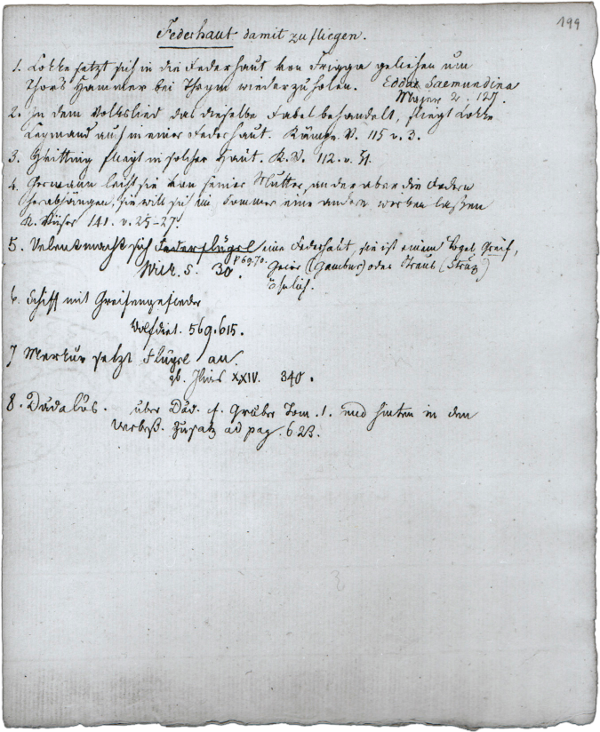 199
Federhaut damit zu fliegen.
1. Lokke setzt sich in die Federhaut von Frigga geliehen um
Thors Hammer bei Thrym wiederzuholen. Edda Saemundina
Majer 2. 127.
2. In dem Volkslied das dieselbe Fabel behandelt, fliegt Lokke
Leymand auch in einer Federhaut. Kämpe V. 115 v. 3.
3. fliegt in solcher Haut. K.V. 112. v. 51.
4. Germann leiht sie von seiner Mutter, an der aber die Federn
herabhängen, sie will sie im Sommer eine andere werben laßen
141. v. 25-27.
5. Velent macht sich Federflügel eine Federhaut, sie ist einem Vogel Greif,
Wilk. S. 30. p 69.70. Geier (Gambur) oder Strauß (Struz)
ähnlich.
6. Schiff mit Greifengefieder
Wolfdiet. 569. 615.
7 Merkur setzt Flügel an.
Ilias XXIV. 340.
8. Dädalus. über Däd. cf. Gruber Tom. 1. und hinten in den
Verbeß. Zusatz ad pag. 623.